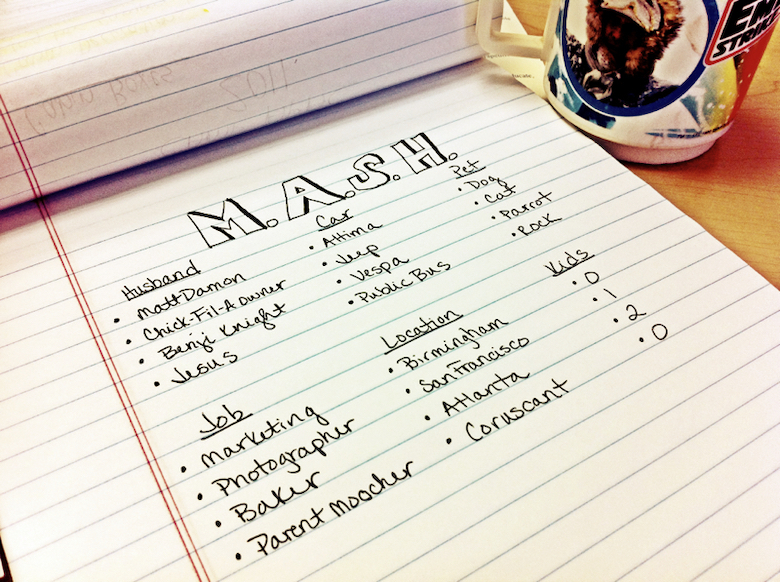 M.A.S.H.
Husband
• Matt Damon
• Chick-Fil-A owner
• Benji Knight
• Jesus
Car
• Altima
• Jeep
• Vespa
• Public Bus
Pet
• Dog
• Cat
• Parrot
• Rock
Job
• Marketing
• Photographer
• Baker
• Parent moocher
Location
• Birmingham
• San Francisco
• Atlanta
• Coruscant
Kids
• 0
• 1
• 2
• 0